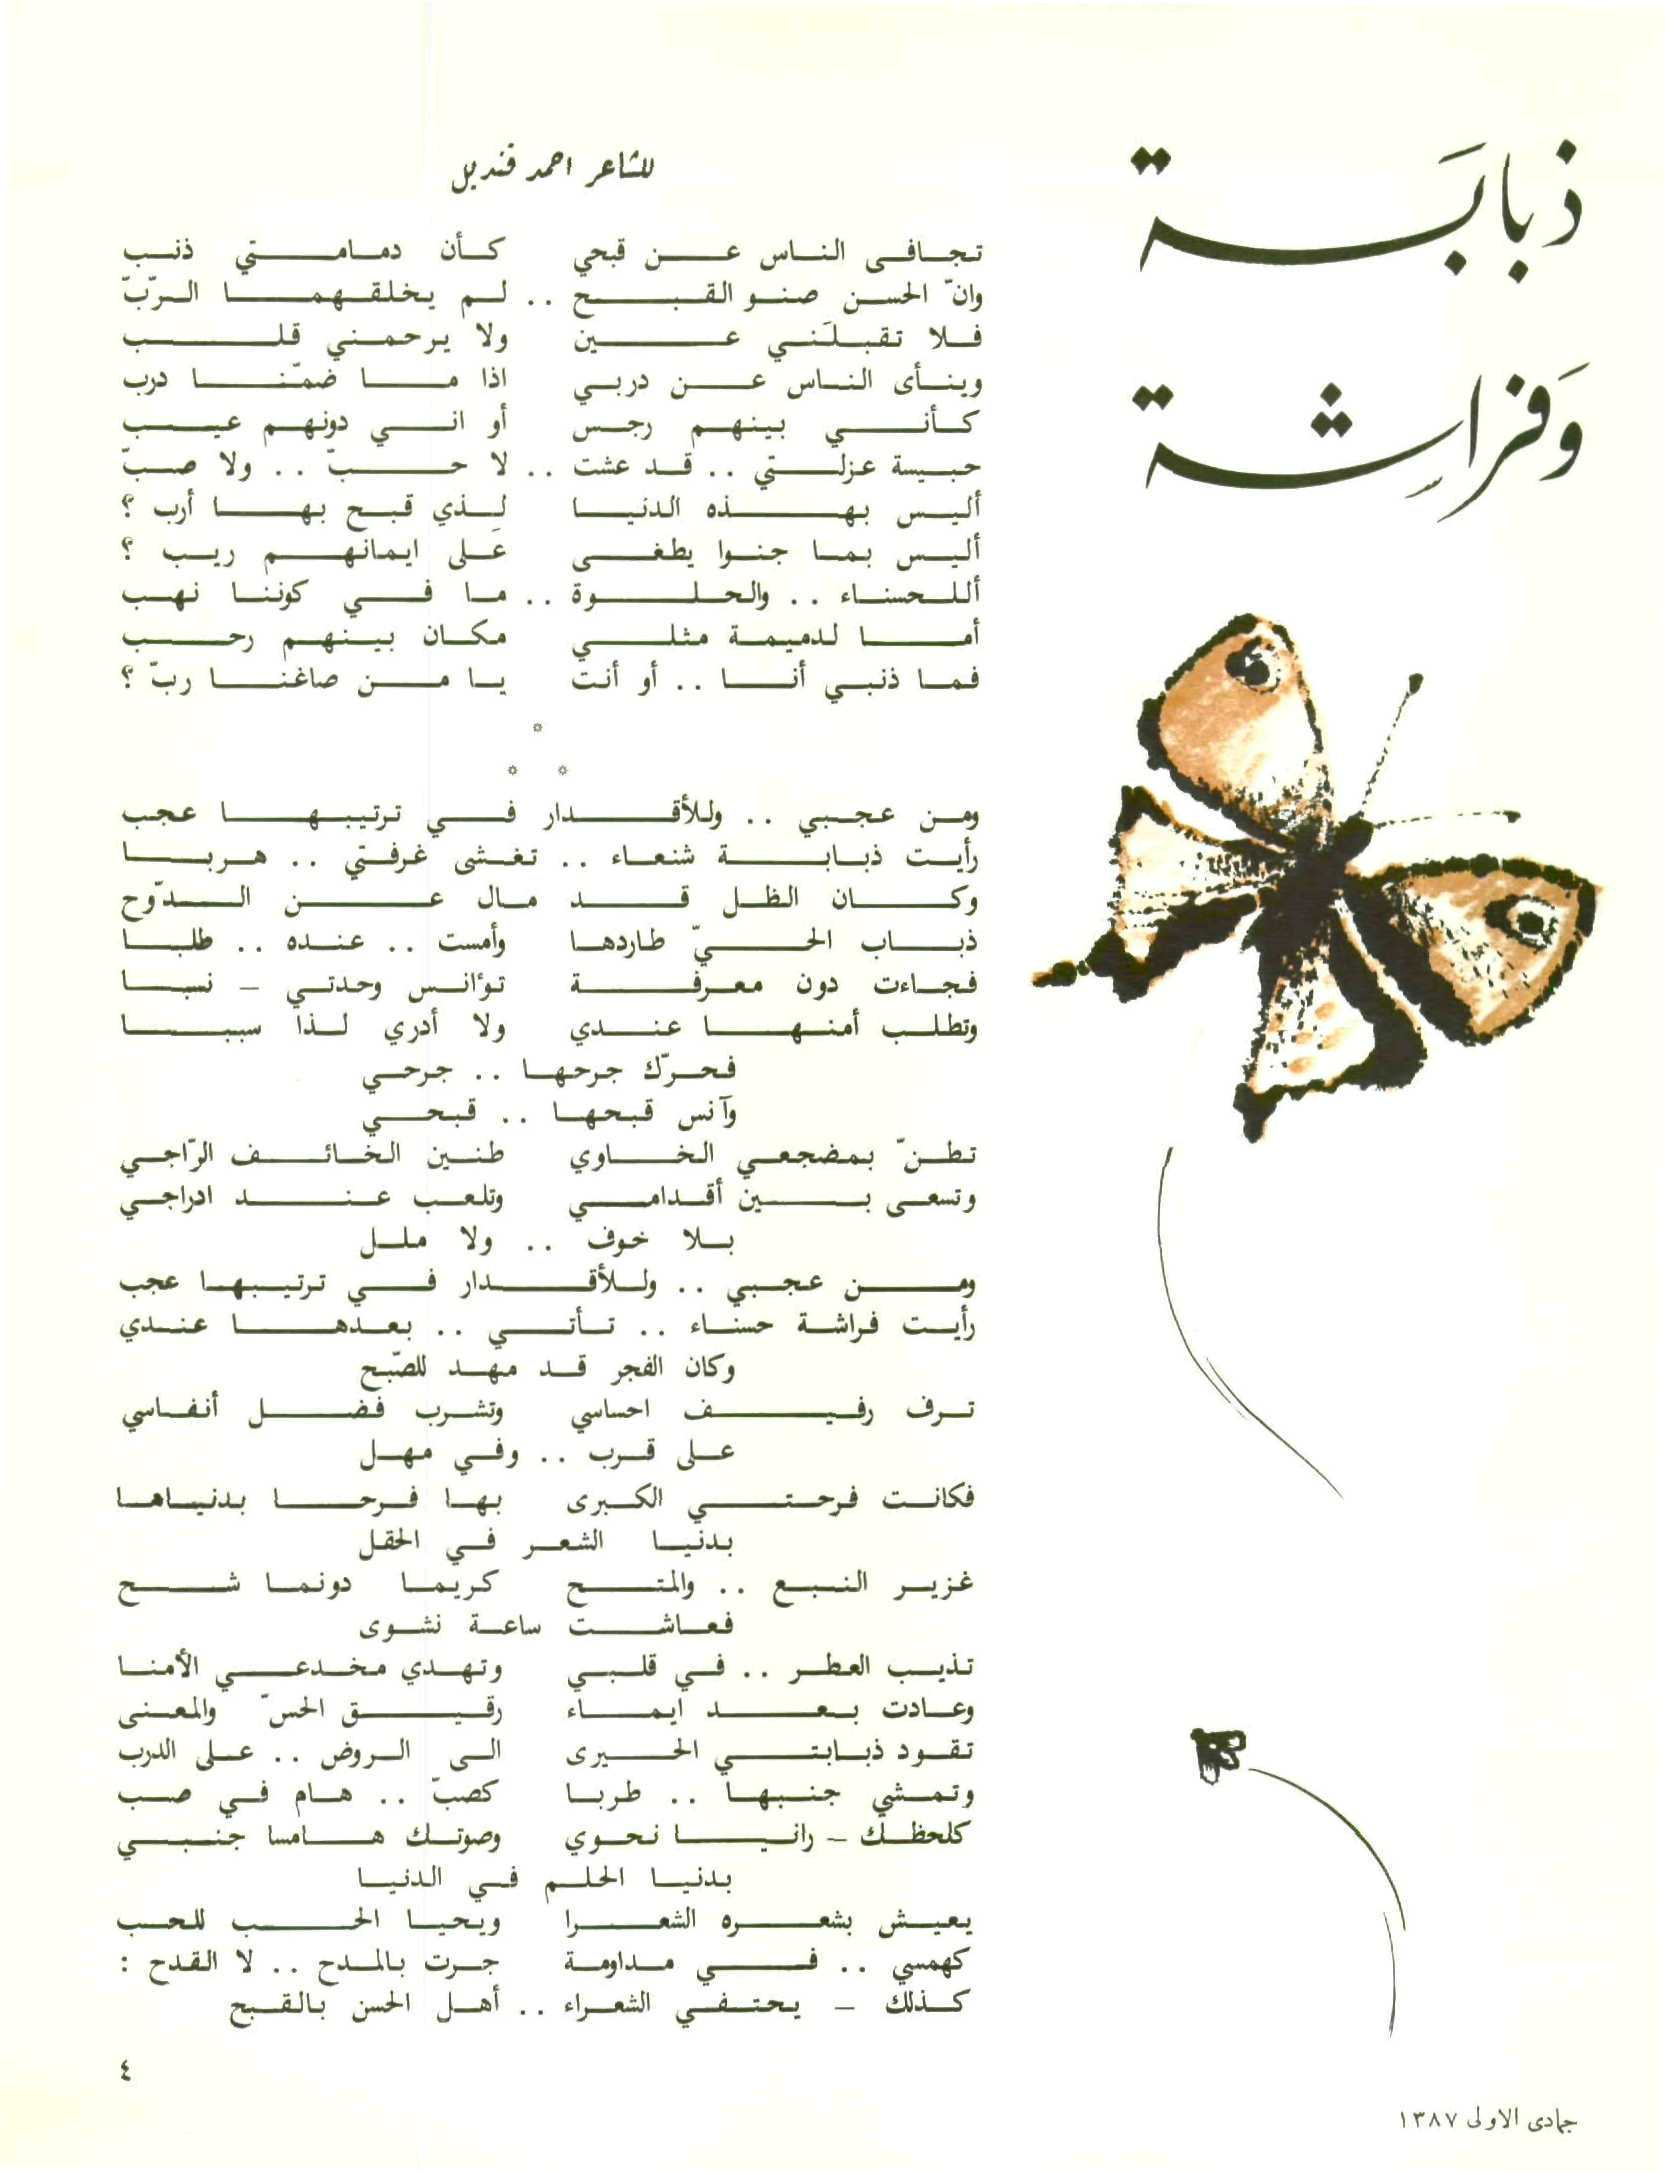 ذبابة
وَفراشة
للشاعر احمد قنديل
تجافى الناس عن قبحي كأن دمامتي ذنب
وانّ الحسن صنو القبح .. لم يخلقهما الرّبّ
فلا تقبلَني عين ولا يرحمني قلب
وينأى الناس عن دربي اذا ما ضمّنا درب
كأني بينهم رجس أو اني دونهم عيب
حبيسة عزلتي .. قد عشت .. لا حبّ .. ولا صبّ
أليس بهذه الدنيا لذي قبح بها أرب ؟
أليس بما جنوا يطغى عَلى ايمانهم ريب ؟
أللحسناء .. والحلوة .. ما في كوننا نهب
أما لدميمة مثلي مكان بينهم رحب
فما ذنبي أنا .. أو أنت يا من صاغنا ربّ ؟
*
* *
ومن عجبي .. وللأقدار في ترتيبها عجب
رأيت ذبابة شنعاء .. تغشى غرفتي .. هربا
وكان الظل قد مال عن الدّوّح
ذباب الحيّ طاردها وأمست .. عنده .. طلبا
فجاءت دون معرفة تؤانس وحدتي – نسبا
وتطلب أمنها عندي ولا أدري لذا سببا
فحرّك جرحها .. جرحي
وآنس قبحها .. قبحي
تطنّ بمضجعي الخاوي طنين الخائف الرّاجي
وتسعى بين أقدامي وتلعب عند ادراجي
بلا خوف .. ولا ملل
ومن عجبي .. وللأقدار في ترتيبها عجب
رأيت فراشة حسناء .. تأتي .. بعدها عندي
وكان الفجر قد مهد للصّبح
ترف رفيف احساسي وتشرب فضل أنفاسي
على قرب .. وفي مهل
فكانت فرحتي الكبرى بها فرحا بدنياها
بدنيا الشعر في الحقل
غزير النبع .. والمتح كريما دونما شح
فعاشت ساعة نشوى
تذيب العطر .. في قلبي وتهدي مخدعي الأمنا
وعادت بعد ايماء رقيق الحسّ والمعنى
تقود ذبابتي الحيرى الى الروض .. على الدرب
وتمشي جنبها .. طربا كصبّ .. هام في صب
كلحظك – رانيا نحوي وصوتك هامسا جنبي
بدنيا الحلم في الدنيا
يعيش بشعره الشعرا ويحيا الحب للحب
كهمسي .. في مداومة جرت بالمدح .. لا القدح :
كذلك – يحتفي الشعراء .. أهل الحسن بالقبح
٤
جمادى الاولى ١٣٨٧